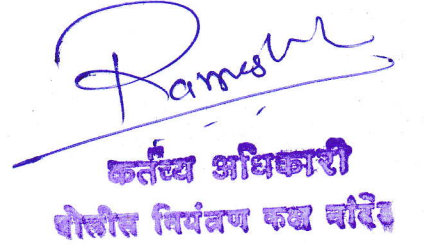 Ramesh
कर्तव्य अधिकारी
पोलीस नियंत्रण कक्ष नांदेड